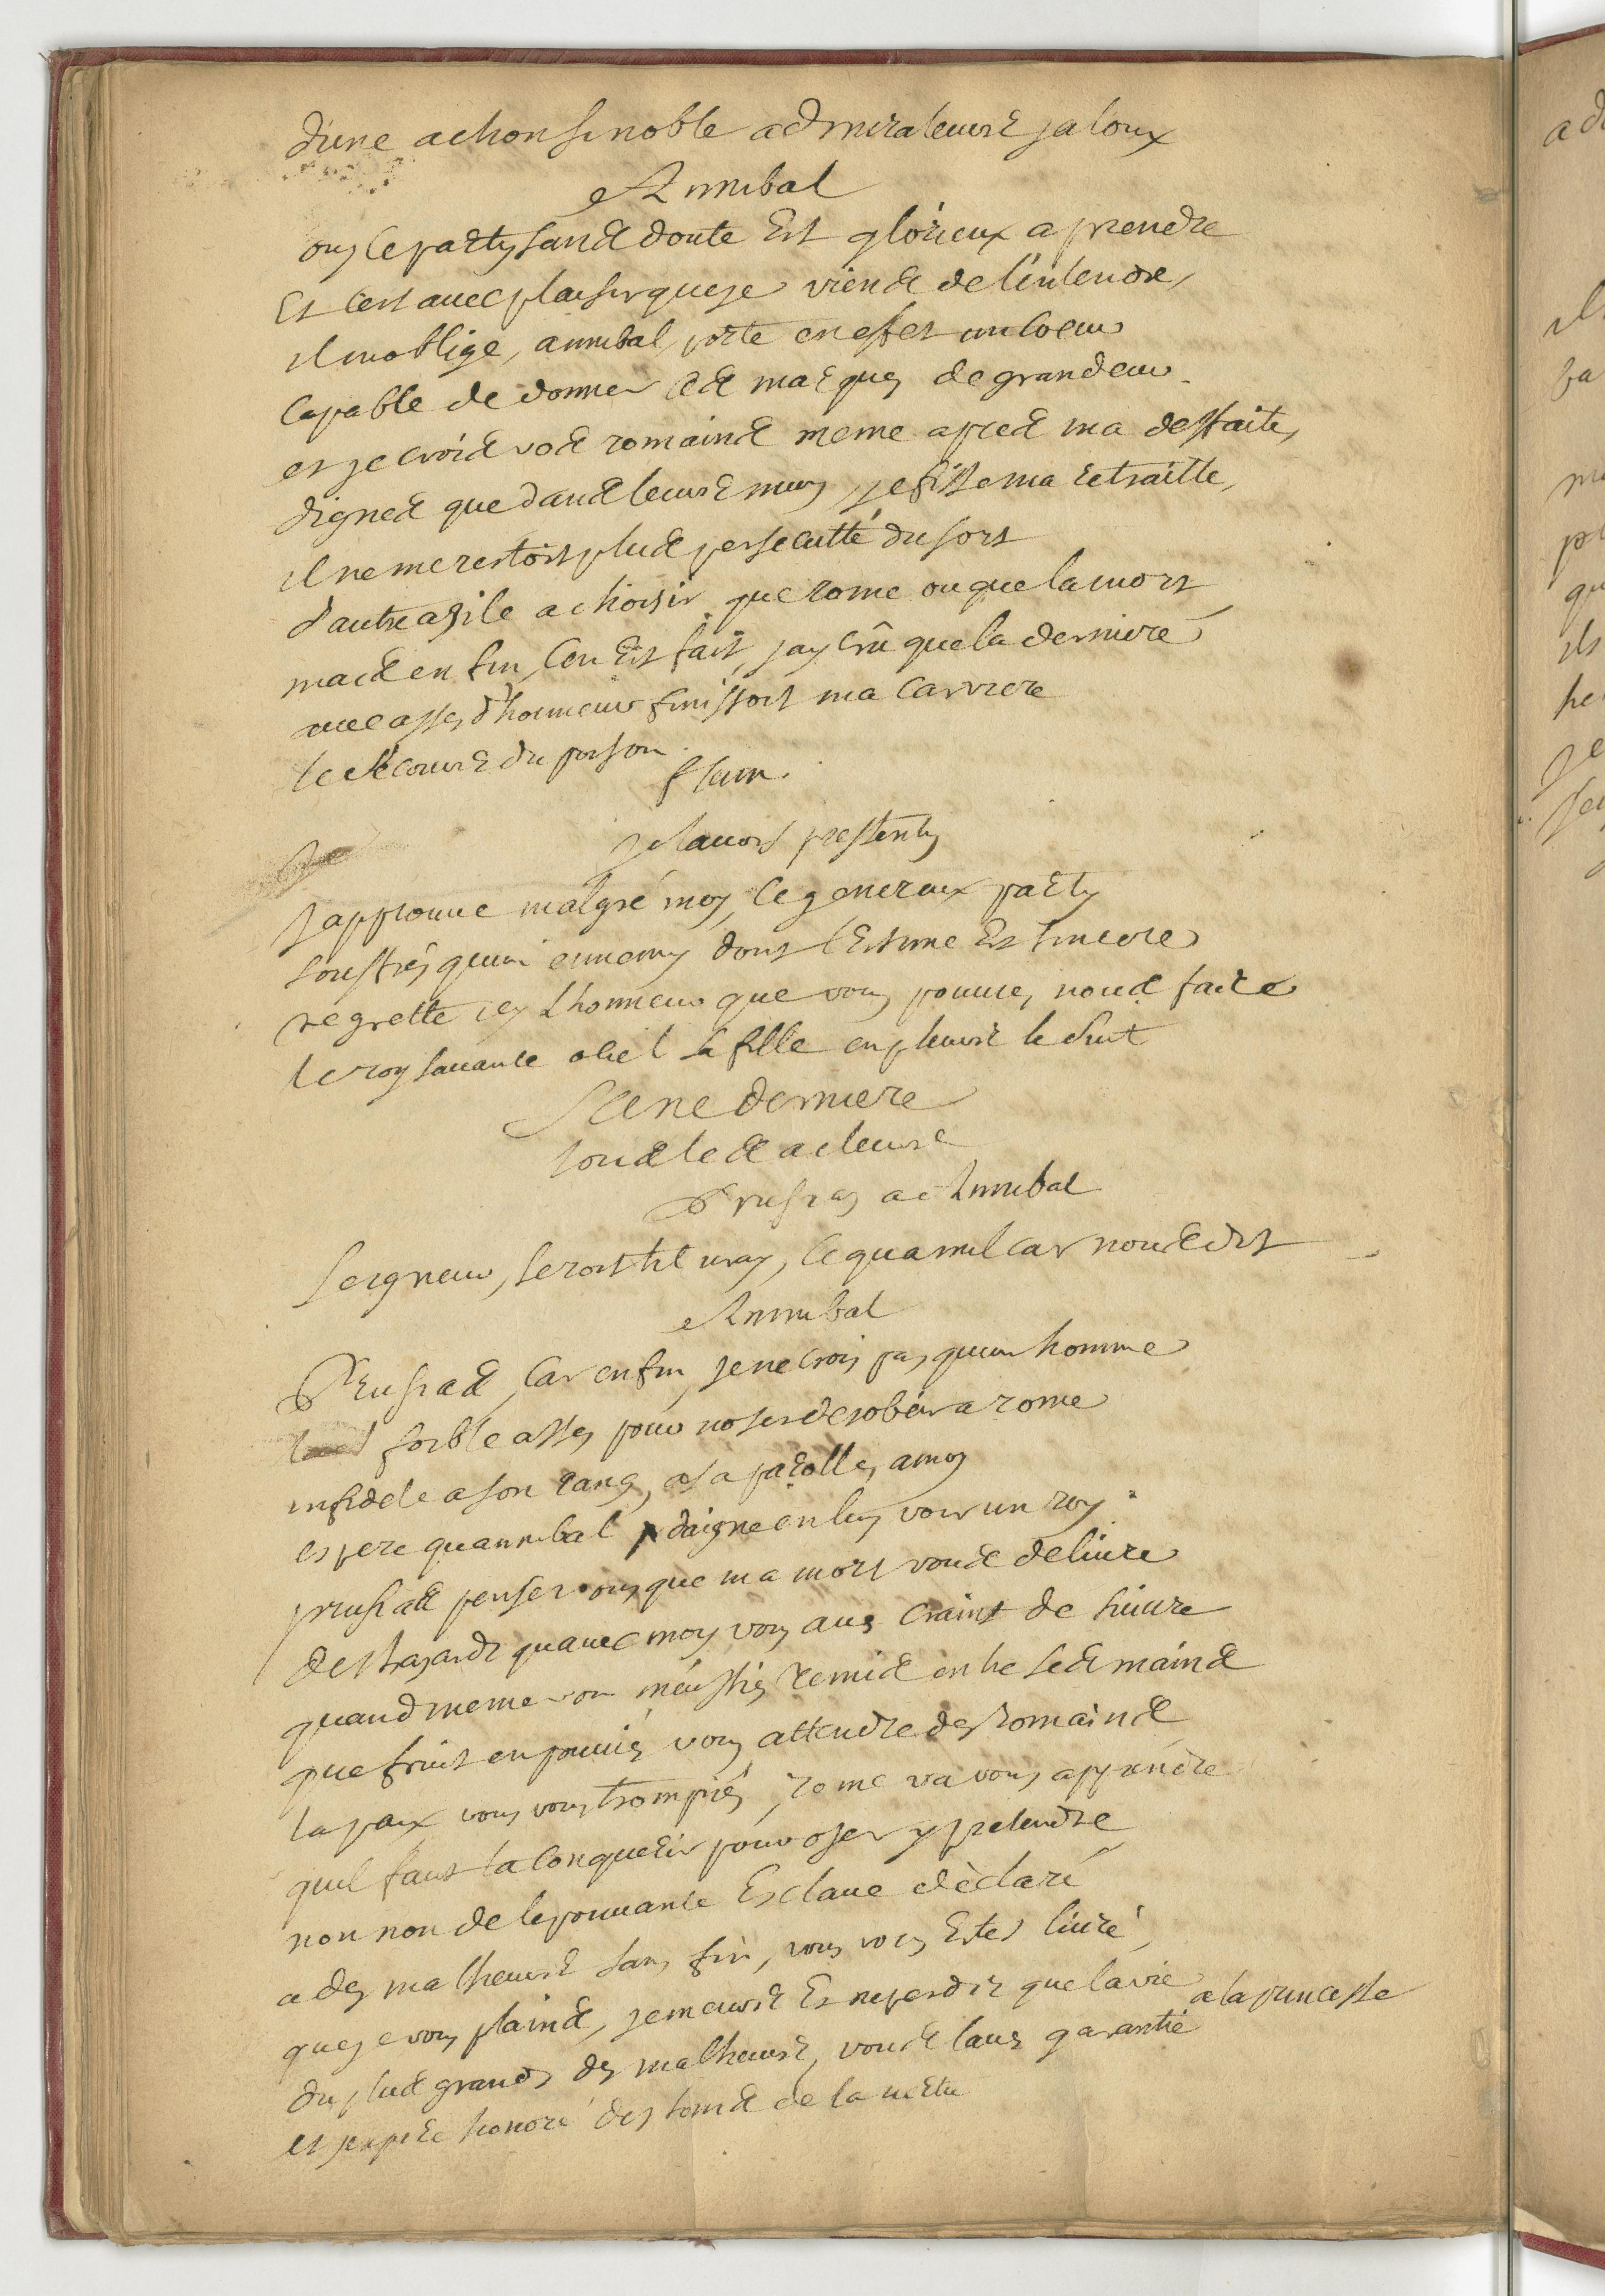 d'une action si noble admirateurs jaloux
Annibal
ouy le party sans doute Est glorieux a prendre
Et cest avec plaisir que je viens de l'entendre,
il moblige, annibal porte en effet un coeur
Capable de donner ces marques de grandeur
et je crois vos romains meme apres ma deffaite,
dignes que dans leurs murs je fisse ma retraitte,
il ne me restoit plus persecutté du sort
d'autre azile a choisir que rome ou que la mort
mais en fin, c'en Est fait, jay crû que la derniere
avec assez d'honneur finissoit ma carriere
le secours du poison.
flam.
je lavois pressenty
Japprouve malgré moy, ce genereux party
souffrés quun ennemy dont l'Estime Est sincere
regrette icy lhonneur que vous pouvie, nous faire
le roy savance o ciel sa fille en pleurs le suit
Scene derniere
tous les acteurs
Prusias a Annibal
Seigneur, seroit til vray, ce quamilcar nous dit
Annibal
Prusias, car enfin, je ne crois pas quun homme
foible assez pour noser desobéir a rome
infidele a son rang, a sa parolle, a moy
espere quannibal daigne en luy voir un roy
prusias penser vous que ma mort vous delivre
des hazards quavec moy vous avez craint de suivre
quand meme vous m'eussiez remis entre ses mains
que fruit en pouviés vous attendre des Romains
la paix vous vous trompiés, rome va vous apprendre
quil faut la conquerir pour oser y pretendre
non non de lepouvante Esclave déclaré
a des malheurs sans fin, vous vous Estes livré,
que je vous plains, je meurs Et ne perdre que la vie
a la princesse
du plus grands des malheurs, vous lavez garantie
et jexpire honoré des soins de la vertu